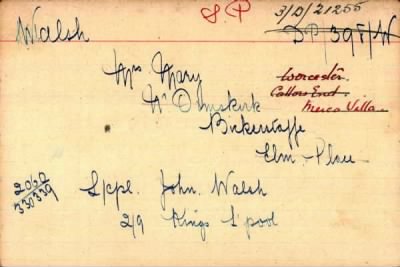 8P
3/D/21255
Walsh
DP/395/W
Mrs Mary
Worcester.
Callow End.
Merca Villa.
Nr Ormskirk
Birkentaffe
Elm Place
2060
330339
L/cpl. John. Walsh
2/9 Kings L'pool